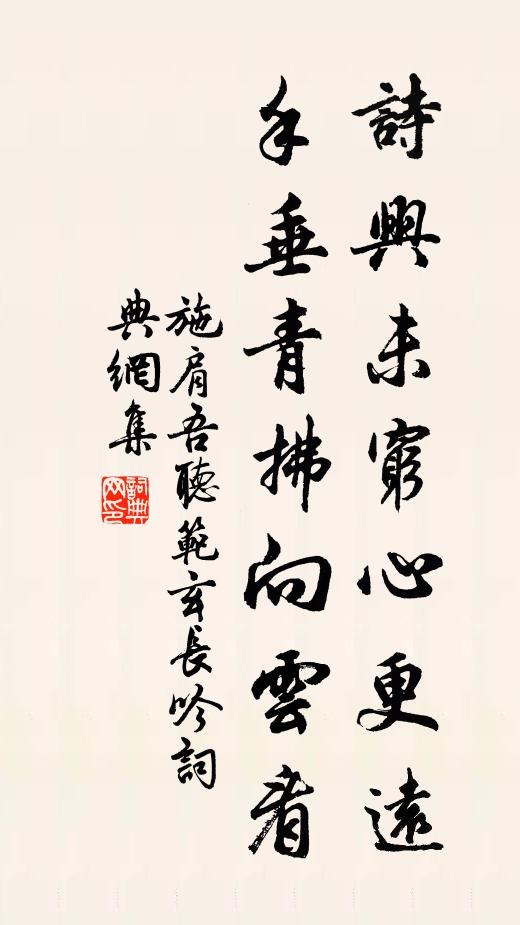 詩興未窮心更遠
手垂青拂向雲看
施肩吾聽範玄長吟詞
典網集
詞典網印